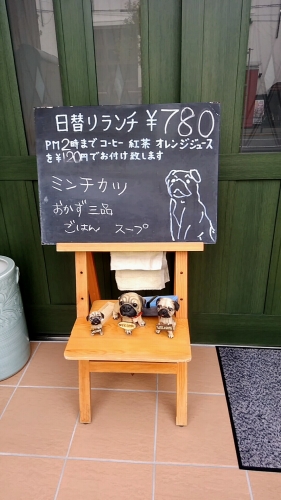 日替りランチ ¥780
PM2時までコーヒー 紅茶 オレンジジュース
を¥120円でお付け致します
ミンチカツ
おかず三品
ごはん スープ
WELCOME